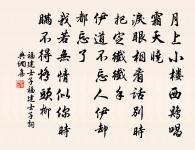 月上小樓西鷄唱
霜天曉
淚眼相看話別時
把定纖纖手
伊道不忘人伊却
都忘了
我若無情似你時
瞞不得橋頭柳
福建士子福建士子詞